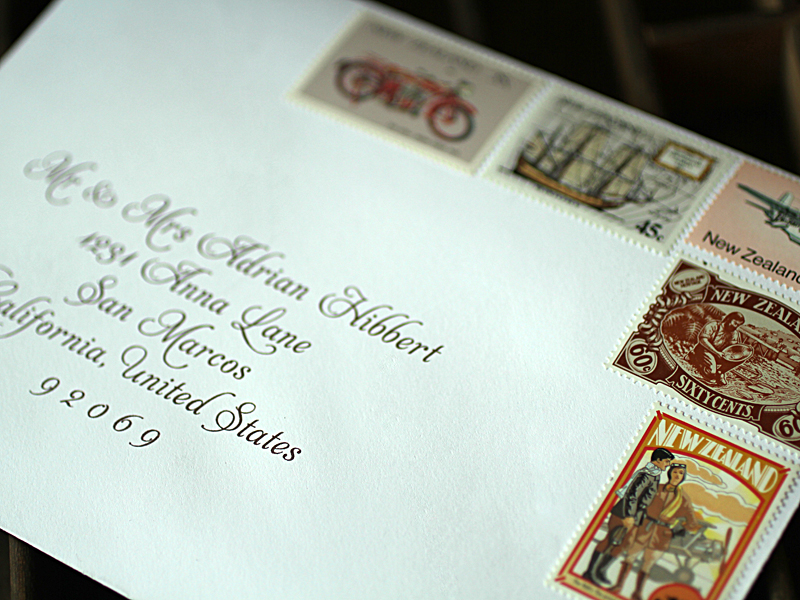 Mr & Mrs Adrian Hibbert
1231 Anna Lane
San Marcos
California, United States
92069
45c
New Zealand
NEW ZEALAND
60c
SIXTY CENTS
60
NEW ZEALAND